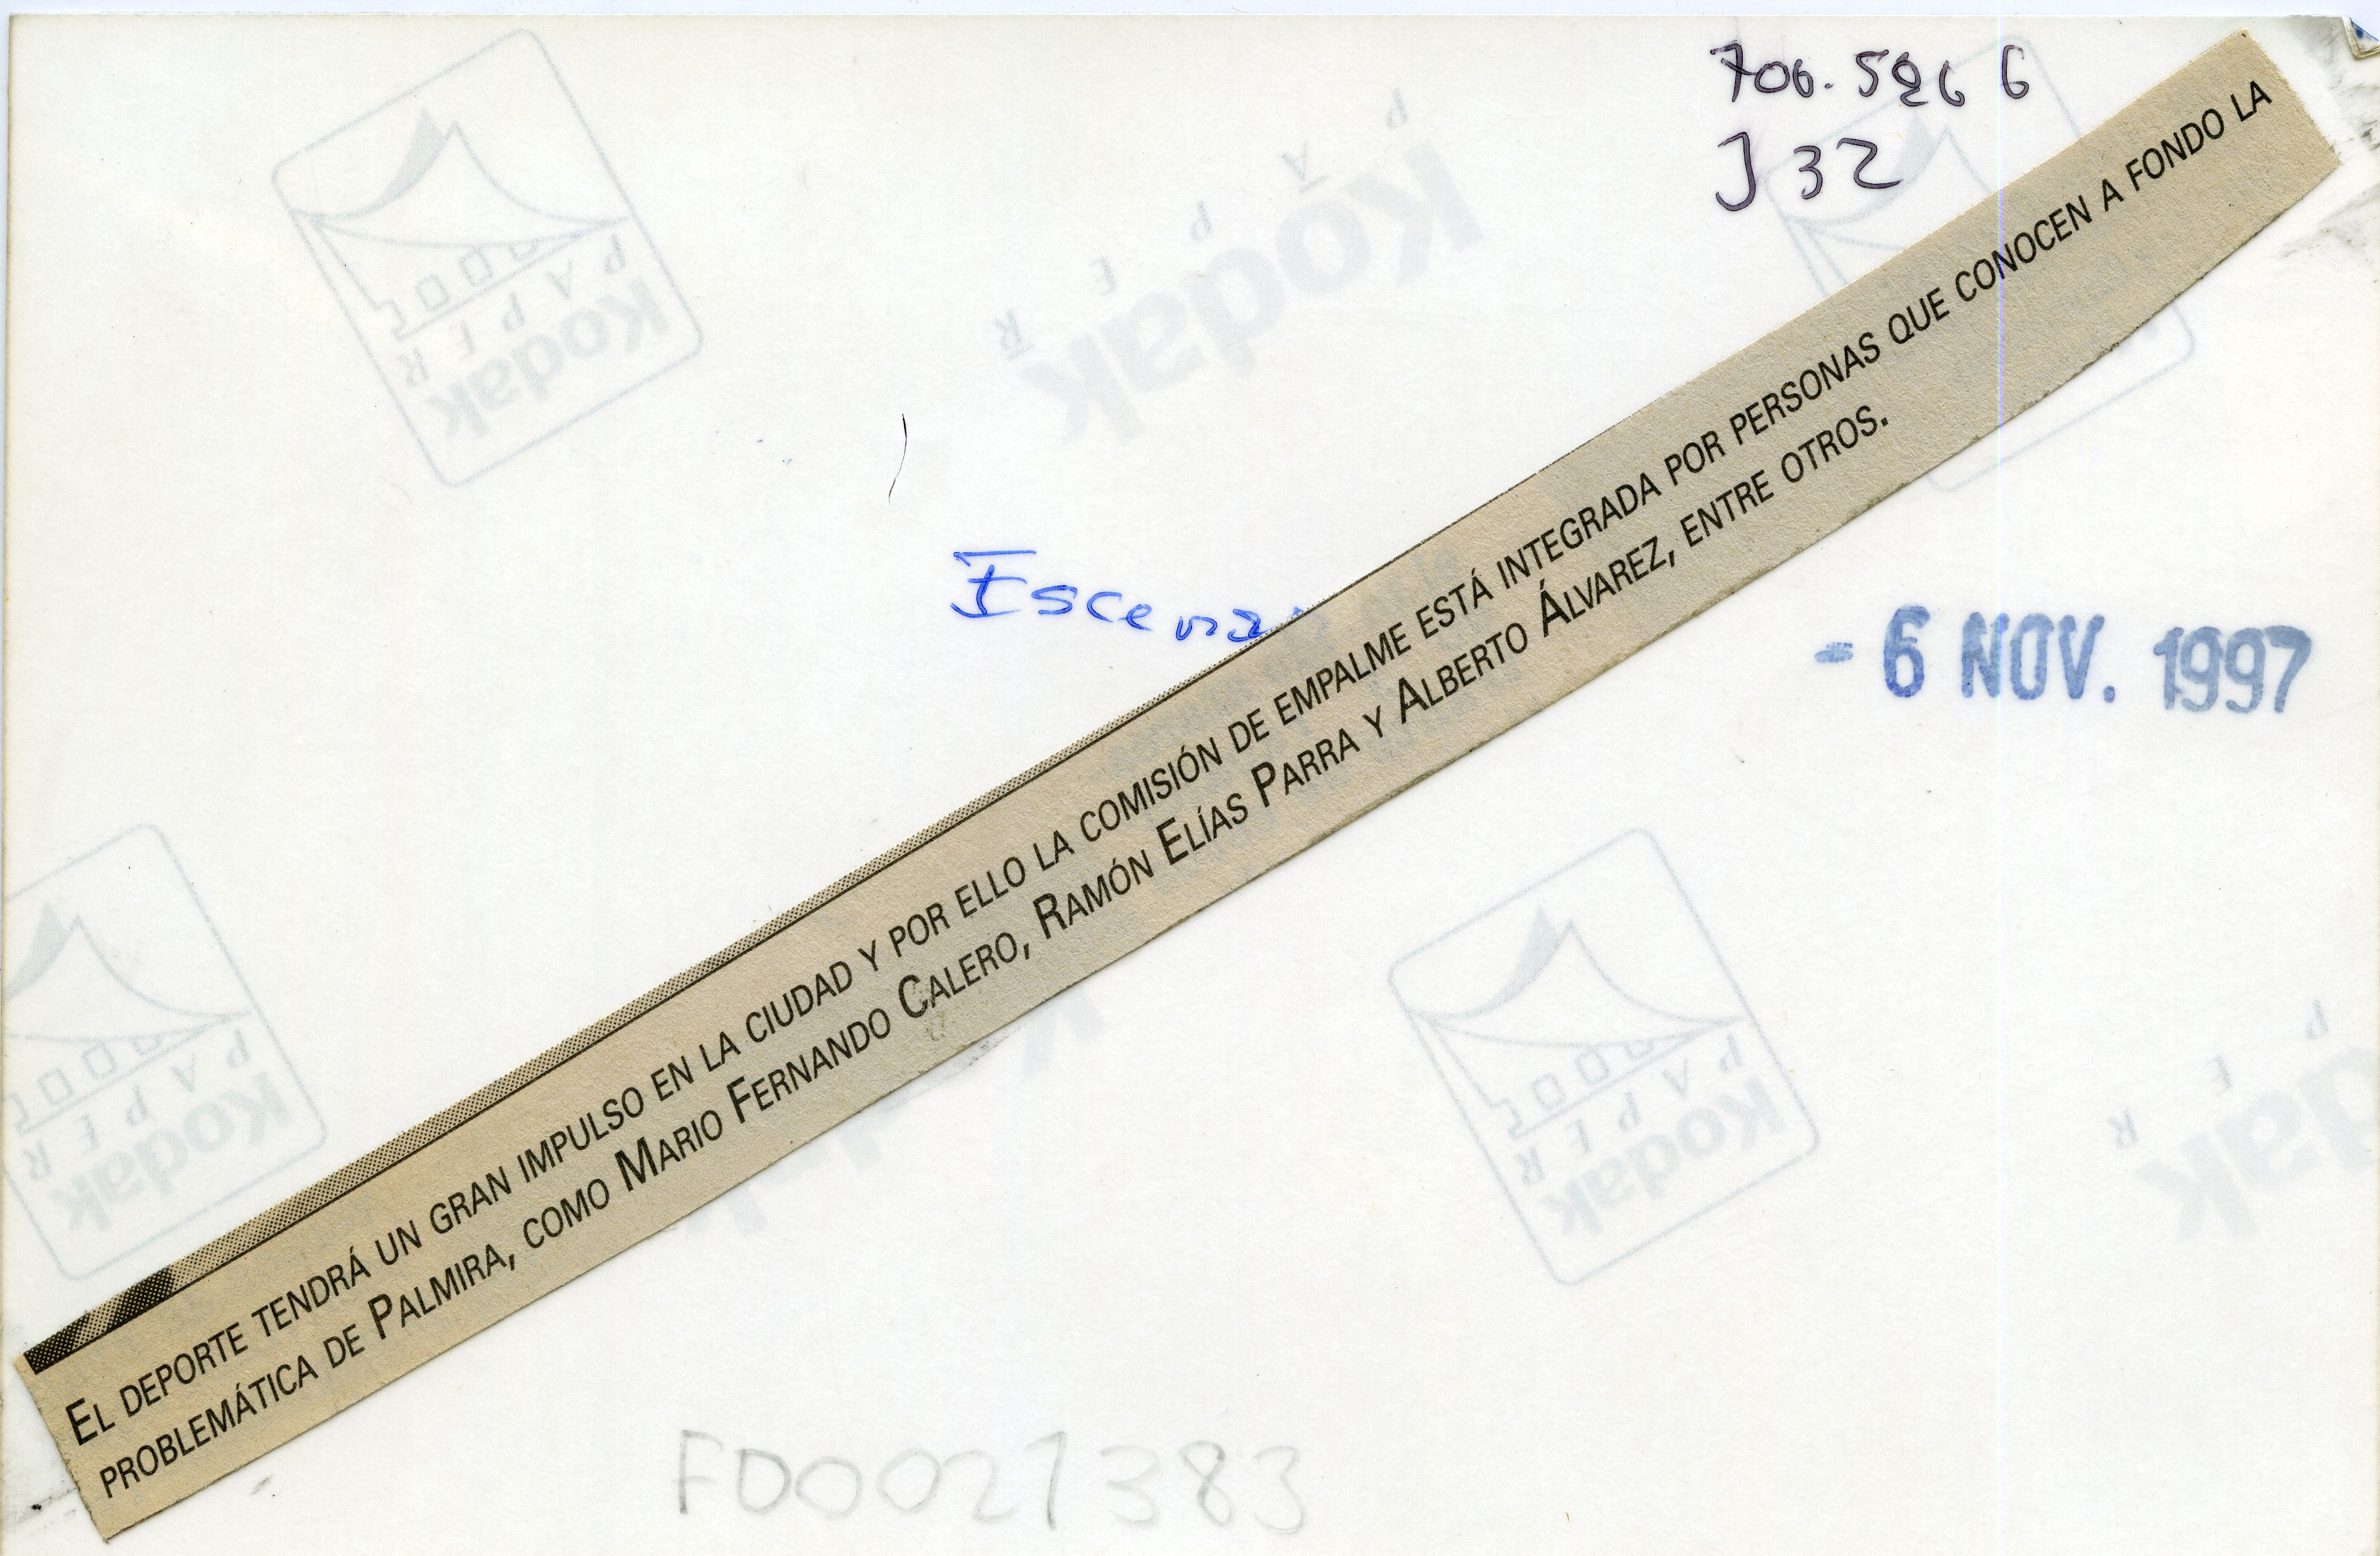 706.5266
J32
Escena
EL DEPORTE TENDRÁ UN GRAN IMPULSO EN LA CIUDAD Y POR ELLO LA COMISIÓN DE EMPALME ESTÁ INTEGRADA POR PERSONAS QUE CONOCEN A FONDO LA
PROBLEMÁTICA DE PALMIRA, COMO MARIO FERNANDO CALERO, RAMÓN ELÍAS PARRA Y ALBERTO ÁLVAREZ, ENTRE OTROS.
- 6 NOV. 1997
FD0021383
Kodak
PAPER
Kodak
PAPER
Kodak
PAPER
Kodak
PAPER